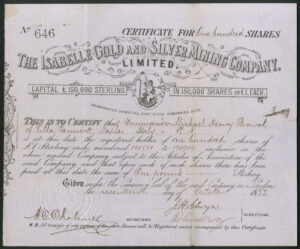 No 646 CERTIFICATE FOR One hundred SHARES
THE ISABELLE GOLD AND SILVER MINING COMPANY,
LIMITED.
CAPITAL £150,000 STERLING IN 150,000 SHARES OF £1 EACH.
INCORPORATED UNDER THE JOINT STOCK COMPANIES ACTS.
THIS IS TO CERTIFY that Commander Michael Henry
of Villa Naples, Italy, R.N.
is the registered holder of One hundred shares of
£1 Sterling each numbered inclusive in the
above named Company subject to the Articles of Association of the
Company and that upon each of such shares there has been
paid at this date the sum of One pound Sterling
Given under the Common Seal of the said Company in London
the seventeenth day of
DIRECTORS.
SECRETARY
N.B. No transfer of any portion of the above Shares will be Registered unless accompanied by this Certificate.